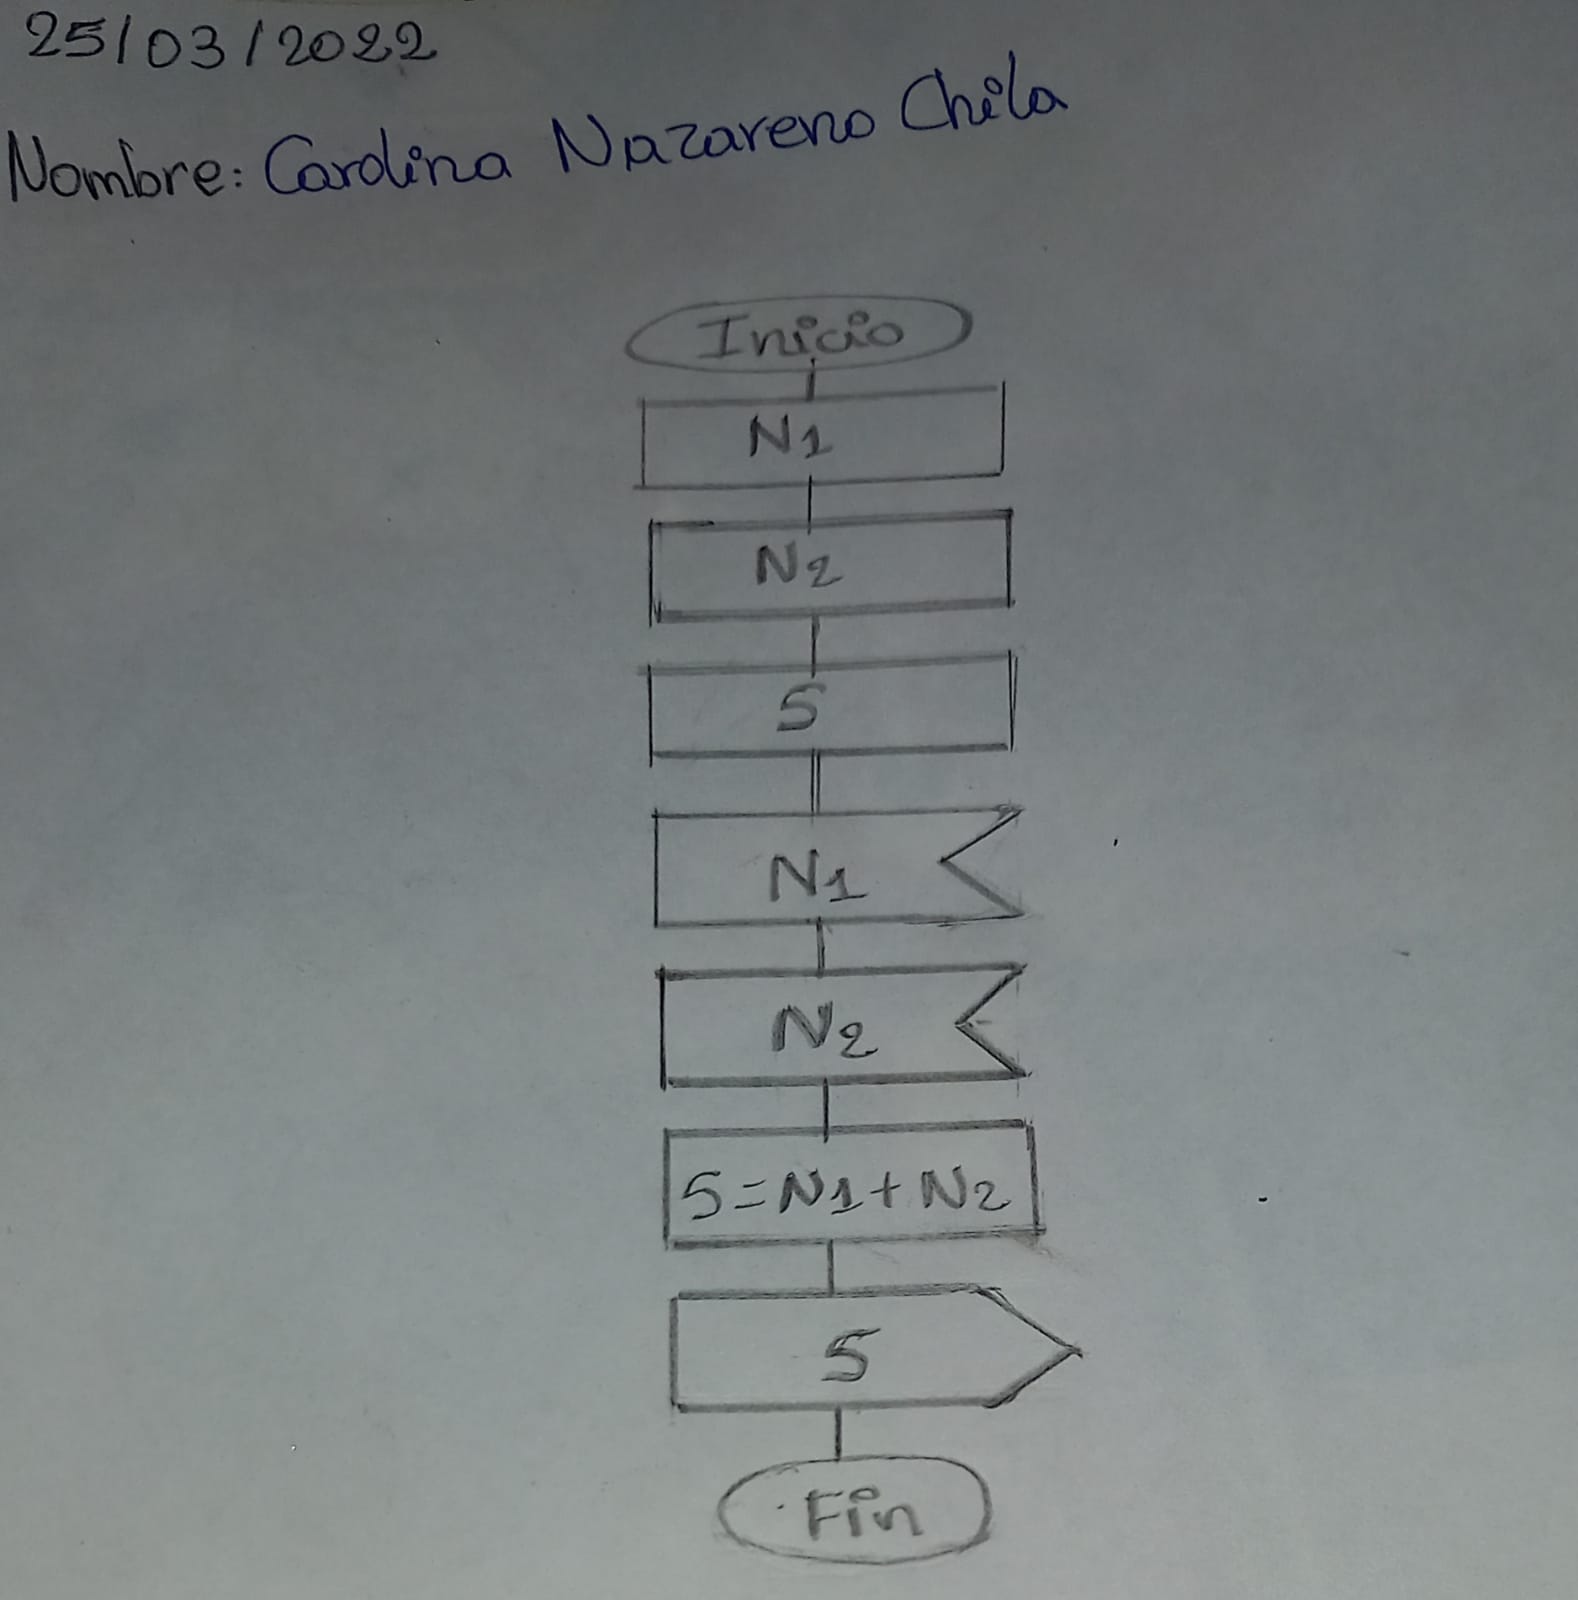 25/03/2022
Nombre: Carolina Nazareno Chila
Inicio
N1
N2
S
N1
N2
S=N1+N2
S
Fin